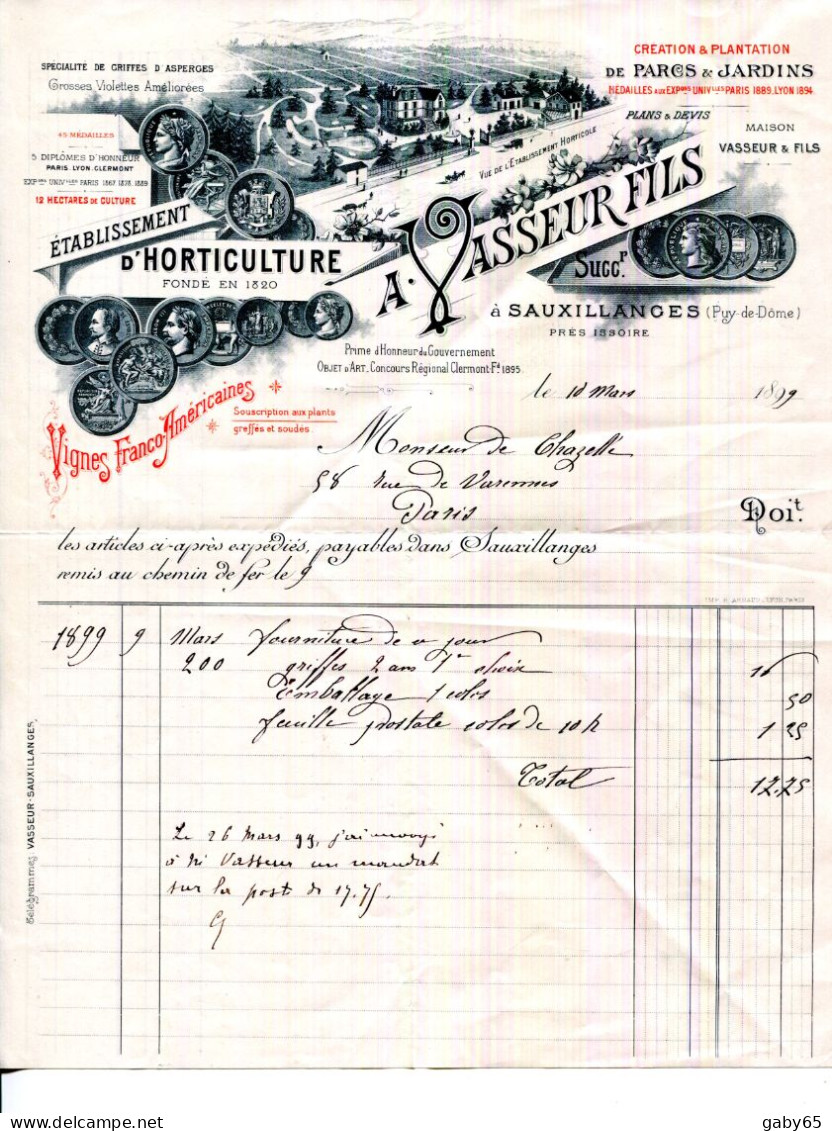 SPÉCIALITÉ DE GRIFFES D'ASPERGES
Grosses Violettes Améliorées
45 MÉDAILLES
5 DIPLÔMES D'HONNEUR
PARIS. LYON. CLERMONT
EXP.ons UNIV.lles PARIS 1867. 1878. 1889
12 HECTARES DE CULTURE
CRÉATION & PLANTATION
DE PARCS & JARDINS
MÉDAILLES AUX EXP.ons UNIV.lles PARIS 1889, LYON 1894
PLANS & DEVIS
MAISON
VASSEUR & FILS
VUE DE L'ÉTABLISSEMENT HORTICOLE
ÉTABLISSEMENT
D'HORTICULTURE
FONDÉ EN 1820
A. VASSEUR FILS
SUCC.r
à SAUXILLANGES (Puy-de-Dôme)
PRÈS ISSOIRE
Prime d'Honneur du Gouvernement
OBJET D'ART. CONCOURS RÉGIONAL CLERMONT-F.d 1895
Vignes Franco-Américaines
Souscription aux plants
greffés et soudés
le 10 Mars 1899
Monseur de Chazelle
58 rue de Varennes
Paris
Doi.t
les articles ci-après expédiés, payables dans Sauxillanges
remis au chemin de fer le 9
1899 9 Mars fourniture de ce jour
200 griffes 2 ans 1er choix 16
Emballage 1 colos 50
feuille postale colos de 10 k 1 25
Total 17.75
Le 26 Mars 99, j'ai envoyé
à Mr Vasseur un mandat
sur la poste de 17.75.
Télégrammes VASSEUR-SAUXILLANGES.
delcampe.net
gaby65